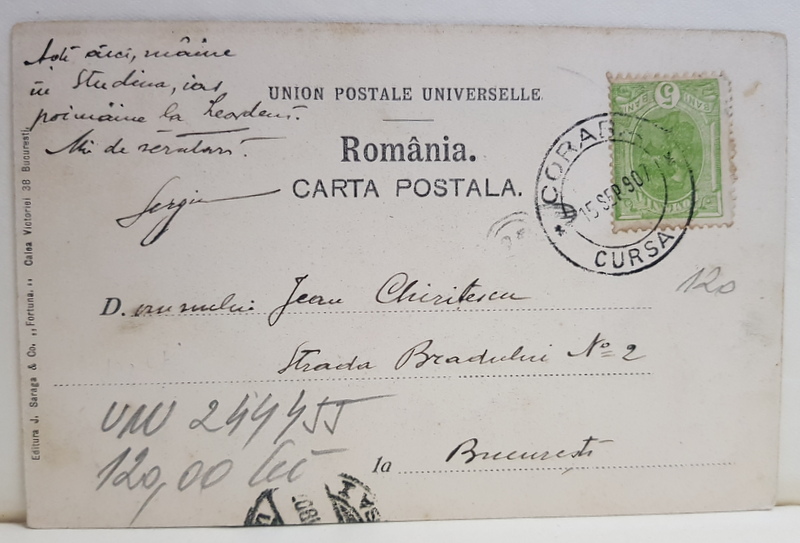 Azi aici, mâine
în Studina, iar
poimâine la
Mii de sărutări.
Sergiu
UNION POSTALE UNIVERSELLE
România.
CARTA POSTALA.
5
BANI
BANI
CORAB
15 SEP 907
CURSA
D. omnului Jean Chiritescu
Strada Bradului No 2
la Bucureşti
120
UNU 244455
120,00 lei
Editura J. Saraga & Co. „Fortuna." Calea Victoriei 38 Bucuresti